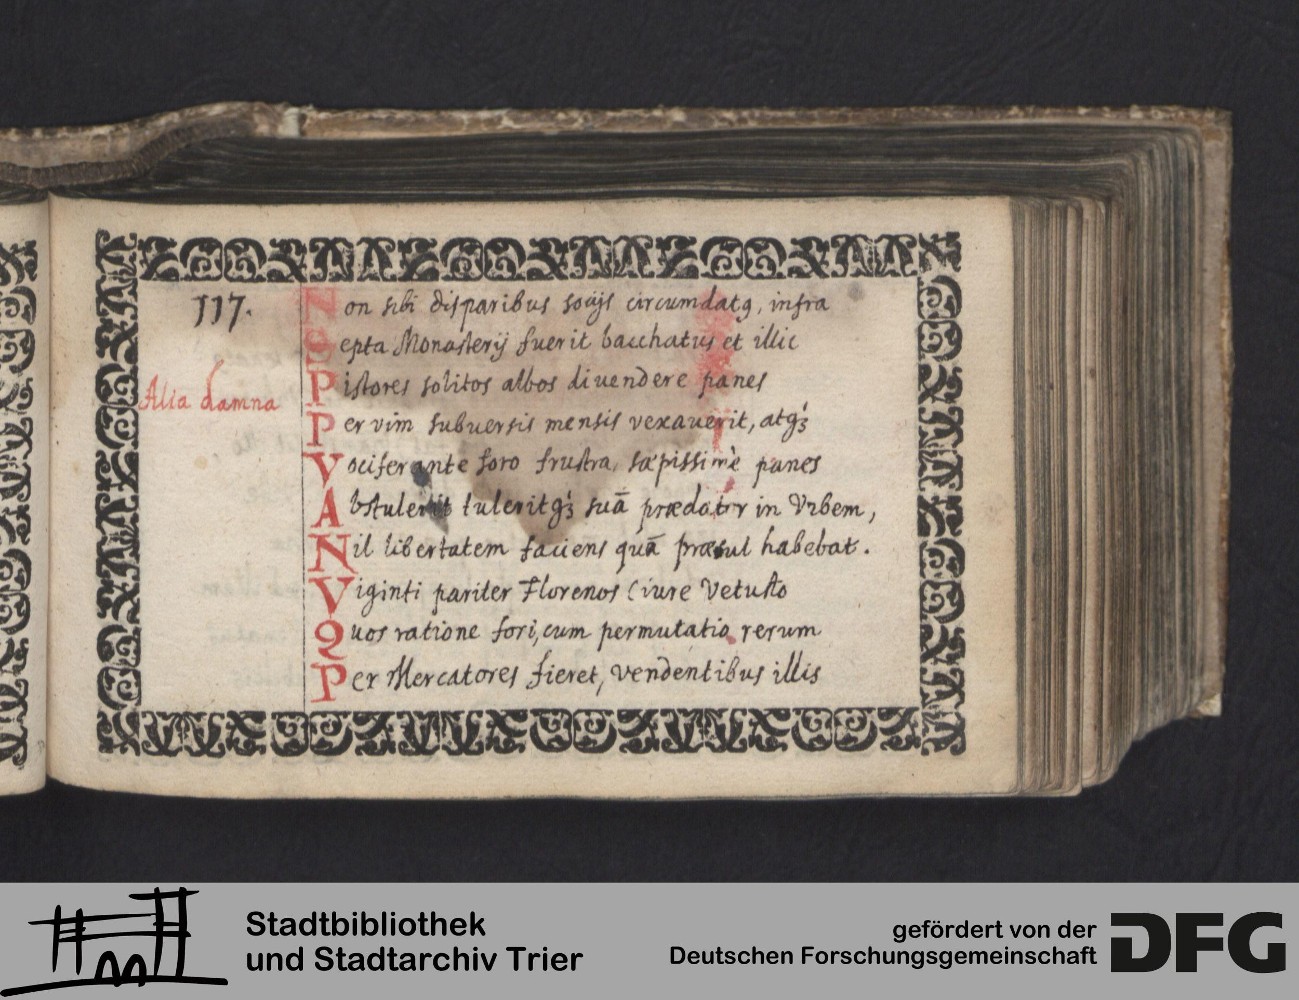 117.
Non sibi disparibus socijs circumdatq, infra
Septa Monasterij fuerit bacchatus et illic
Pistores solitos albos diuendere panes
Alia damna
Per vim subuersis mensis vexauerit, atq́ꝫ
Vociferante foro frustra, sæpissimè panes
Abstulerit tuleritq́ꝫ suā prædator in Vrbem,
Nil libertatem faciens quā præsul habebat.
Viginti pariter Florenos (iure Vetusto
Quos ratione fori, cum permutatio rerum
Per Mercatores fieret, vendentibus illis
Stadtbibliothek
und Stadtarchiv Trier
gefördert von der
Deutschen Forschungsgemeinschaft
DFG